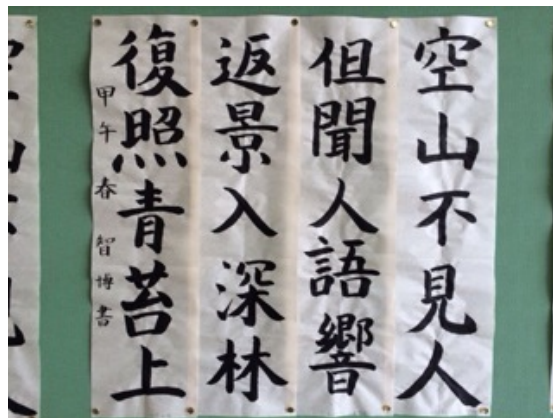 空山不見人
但聞人語響
返景入深林
復照青苔上
甲午春智博書